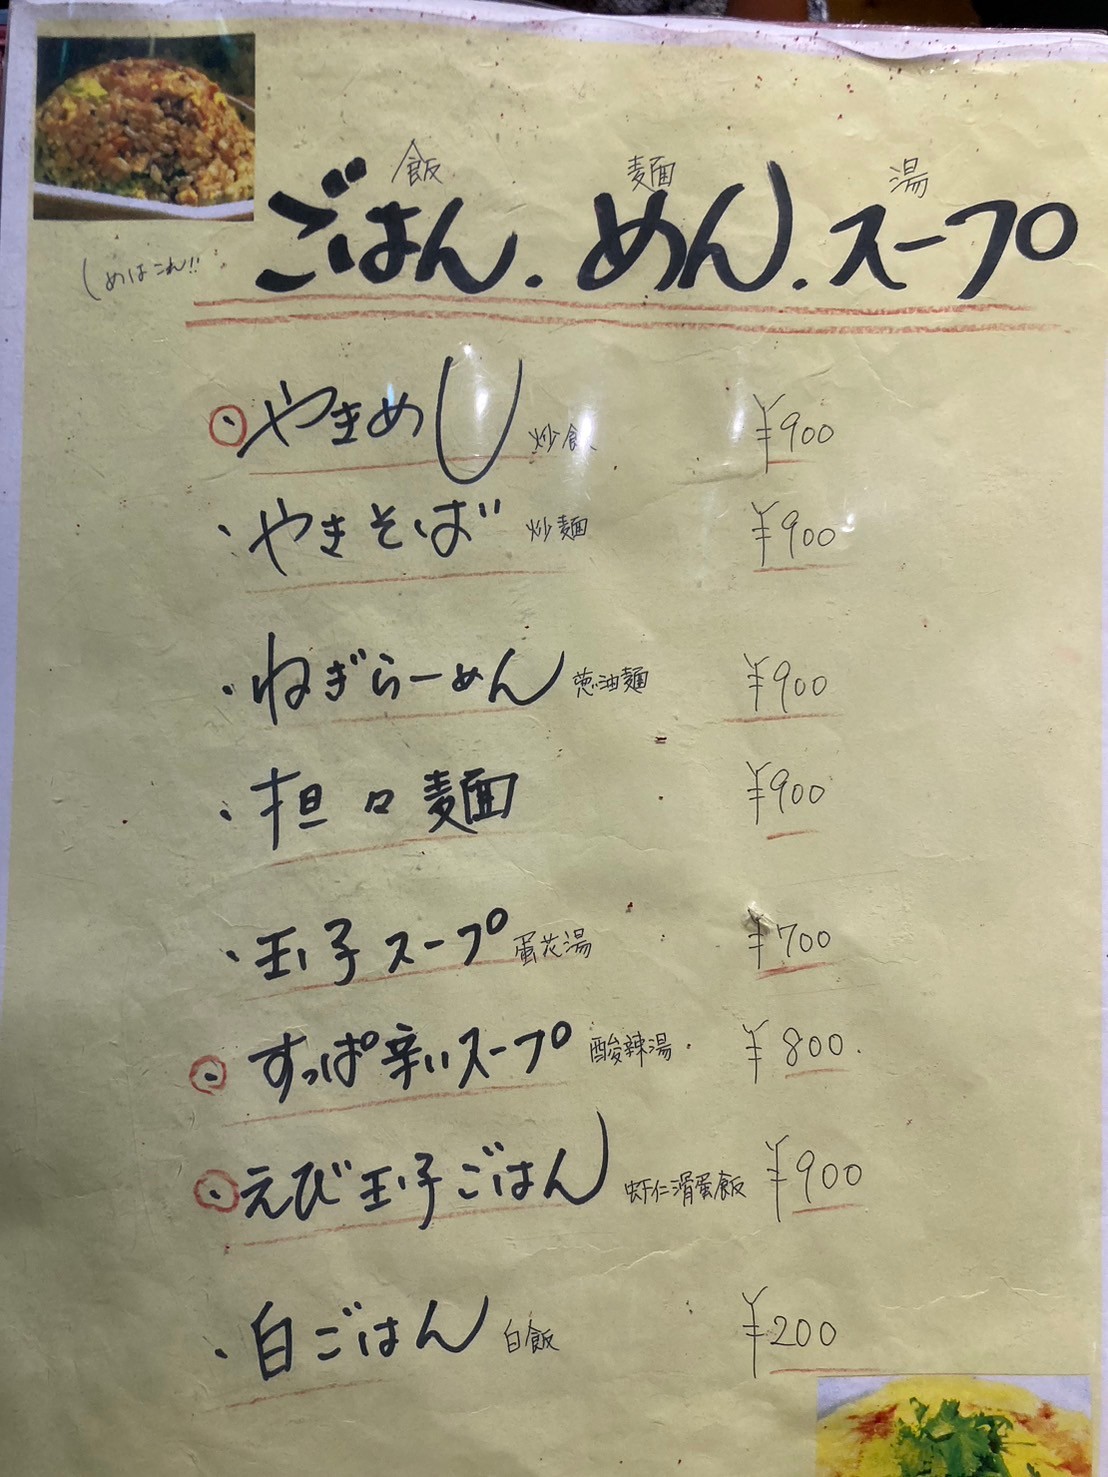 飯 麺 湯
ごはん.めん.スープ
しめはこれ!!
やきめし 炒飯 ¥900
・やきそば 炒麺 ¥900
・ねぎらーめん 葱油麺 ¥900
・担々麺 ¥900
・玉子スープ 蛋花湯 ¥700
すっぱ辛いスープ 酸辣湯. ¥800.
えび玉子ごはん 虾仁滑蛋飯 ¥900
・白ごはん 白飯 ¥200